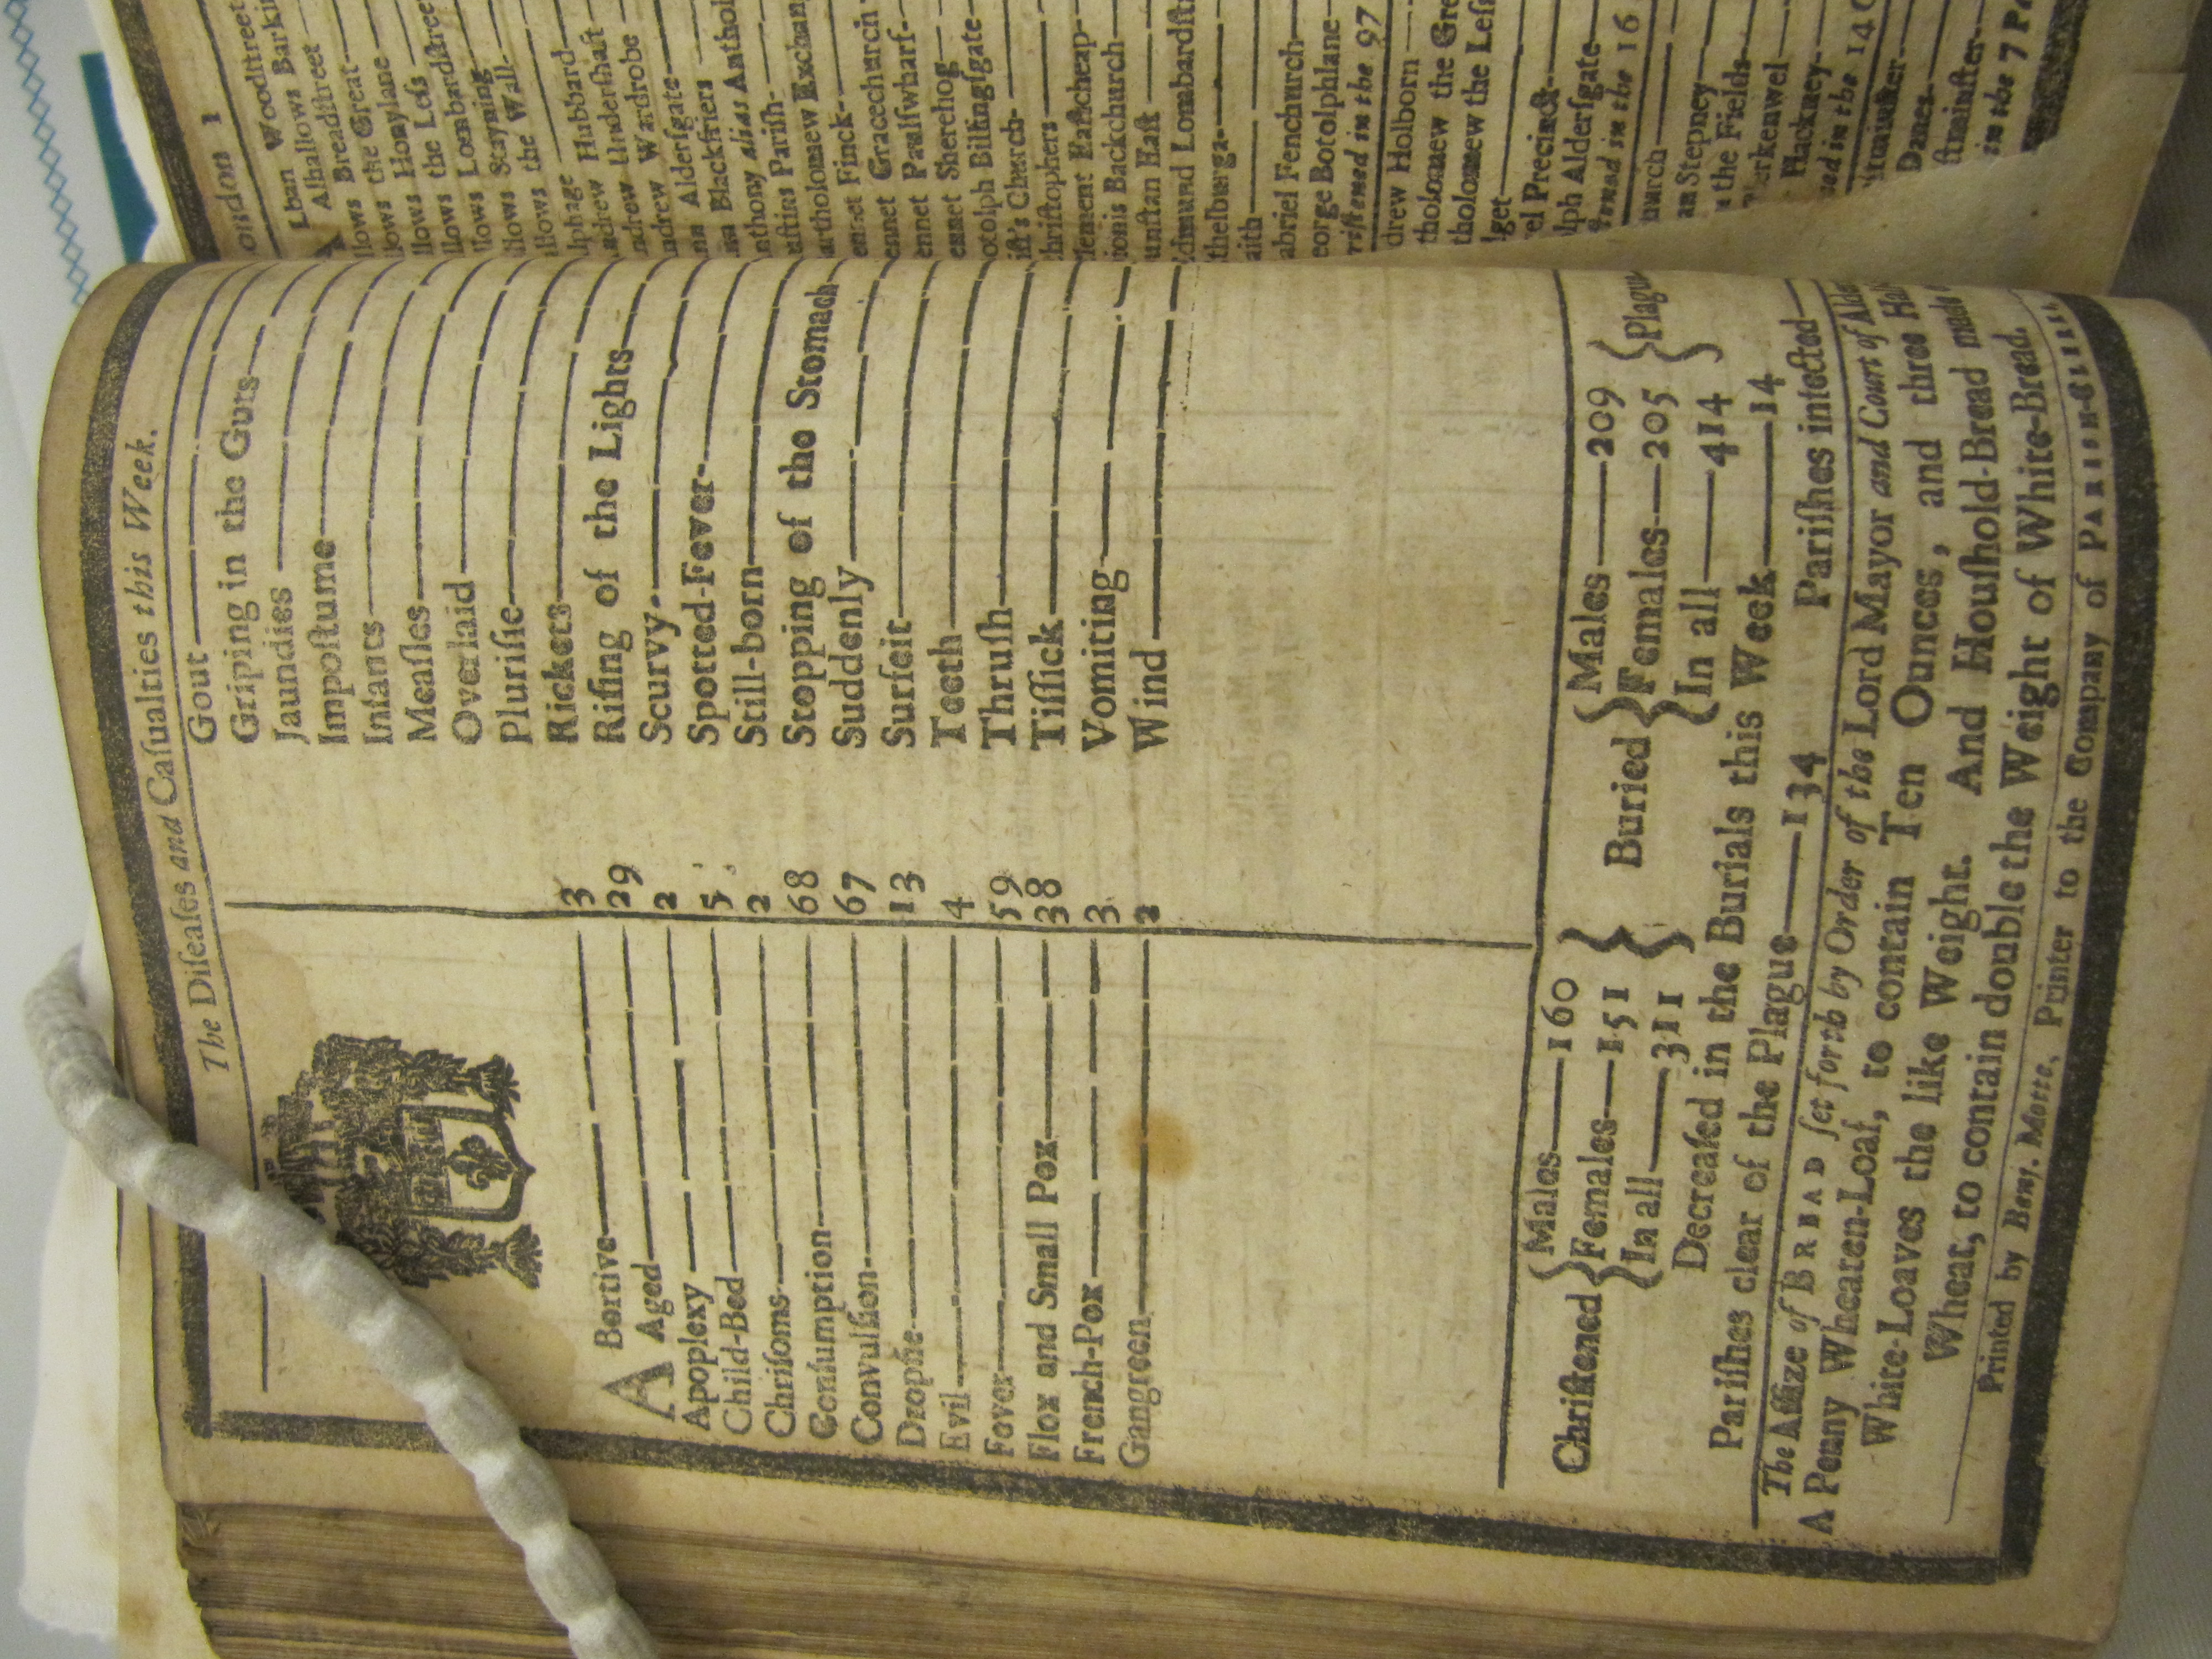 The Diſeaſes and Caſualties this Week.
ABortive 3
Aged 29
Apoplexy 2
Child-Bed 5
Chriſoms 2
Conſumption 68
Convulſion 67
Dropſie 13
Evil 4
Fever 59
Flox and Small Pox 38
French-Pox 3
Gangreen 2
Gout
Griping in the Guts
Jaundies
Impoſtume
Infants
Meaſles
Overlaid
Pluriſie
Rickets
Riſing of the Lights
Scurvy
Spotted-Fever
Still-born
Stopping of the Stomach
Suddenly
Surfeit
Teeth
Thruſh
Tiſſick
Vomiting
Wind
Chriſtned { Males 160
Females 151
In all 311 }
Buried { Males 209
Females 205
In all 414 } Plague
Decreaſed in the Burials this Week 14
Pariſhes clear of the Plague 134 Pariſhes infected
The Aſſize of BREAD ſet forth by Order of the Lord Mayor and Court of
A Penny Wheaten-Loaf, to contain Ten Ounces, and three
White-Loaves the like Weight. And Houſhold-Bread made
Wheat, to contain double the Weight of White-Bread.
Printed by Benj. Motte, Printer to the Company of PARISH-CLERKS
ondon 1
Lban Woodſtreet
Alhallows Barkin
llows Breadſtreet
llows the Great
llows Honylane
llows the Leſs
llows Lombardſtree
llows Stayning
llows the Wall
lphage
ndrew Hubbard
ndrew Underſhaft
ndrew Wardrobe
nn Alderſgate
nn Blackfriers
nthony alias Anthol
uſtins Pariſh
artholomew Exchan
ennet Finck
ennet Gracechurch
ennet Paulſwharf
ennet Sherehog
otolph Billingſgate
iſt's Church
hriſtophers
lement Eaſtcheap
ionis Backchurch
unſtan Eaſt
dmund Lombardſtr
thelberga
aith
abriel Fenchurch
eorge Botolphlane
riſtened in the 97
drew Holborn
tholomew the Gre
tholomew the Leſs
dget
el Precinct
lph Alderſgate
in the 16
hurch
an Stepney
the Fields
erkenwel
Hackney
ed in the 14
Danes
in the 7 Pa